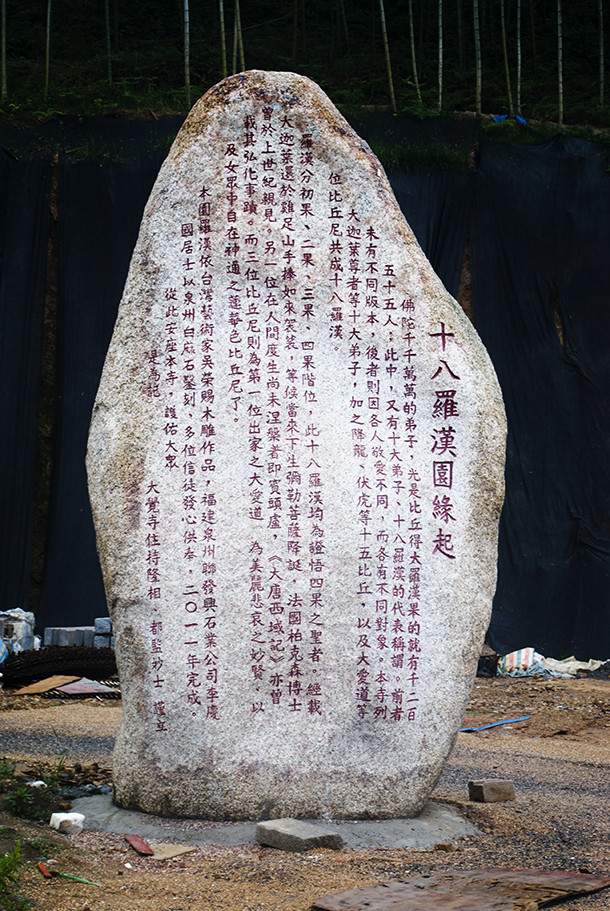 十八羅漢園緣起
佛陀千千萬萬的弟子，光是比丘得大羅漢果的就有千二百
五十五人；此中，又有十大弟子、十八羅漢的代表稱謂。前者
未有不同版本，後者則因各人敬愛不同，而各有不同對象。本寺列
大迦葉尊者等十大弟子，加之降龍、伏虎等十五比丘，以及大愛道等
位比丘尼共成十八羅漢。
羅漢分初果、二果、三果、四果階位，此十八羅漢均為證悟四果之聖者。經載
大迦葉還於雞足山手捧如來袈裟，等候當來下生彌勒菩薩降誕，法國柏克森博士
曾於上世紀親見。另一位在人間度生尚未涅槃者即賓頭盧，《大唐西域記》亦曾
載其弘化事蹟。而三位比丘尼則為第一位出家之大愛道　為美麗悲哀之妙賢，以
及女眾中自在神通之蓮華色比丘尼了。
本園羅漢依台灣藝術家吳榮賜木雕作品，福建泉州聯發興石業公司李慶
國居士以泉州白麻石鏨刻，多位信徒發心供奉，二〇一一年完成。
從此安座本寺，護佑大眾
是為記
大覺寺住持隆相、都監妙士 謹立